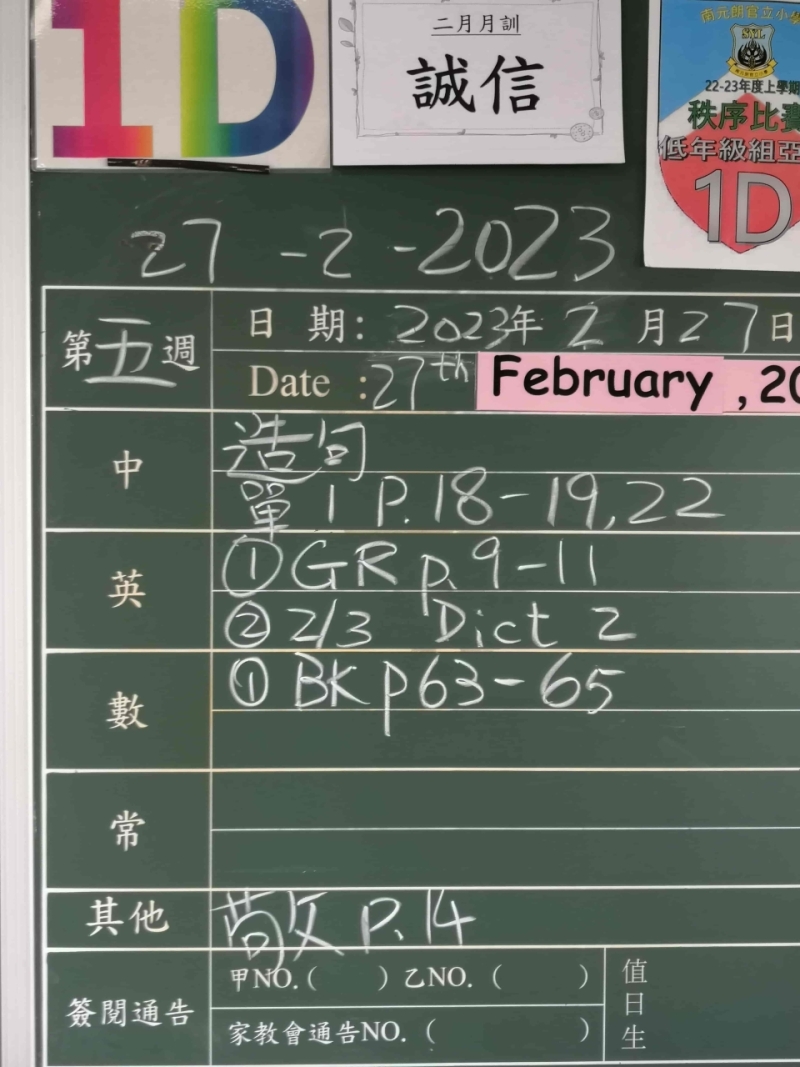 1D
二月月訓
誠信
南元朗官立小學
22-23年度上學期
秩序比賽
低年級組亞
1D
27-2-2023
第五週
日期: 2023年2月27日
Date :27th February, 20
中
造句
單1 P.18-19,22
英
①GR p.9-11
②2/3 Dict 2
數
①BK p63-65
常
其他
P.14
簽閱通告
甲NO.( ) 乙NO. ( )
家教會通告NO. ( )
值日生